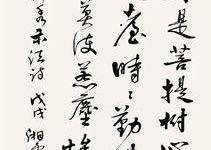 是菩提樹心
臺時時勤
莫使惹塵埃
示法诗戊戌湘